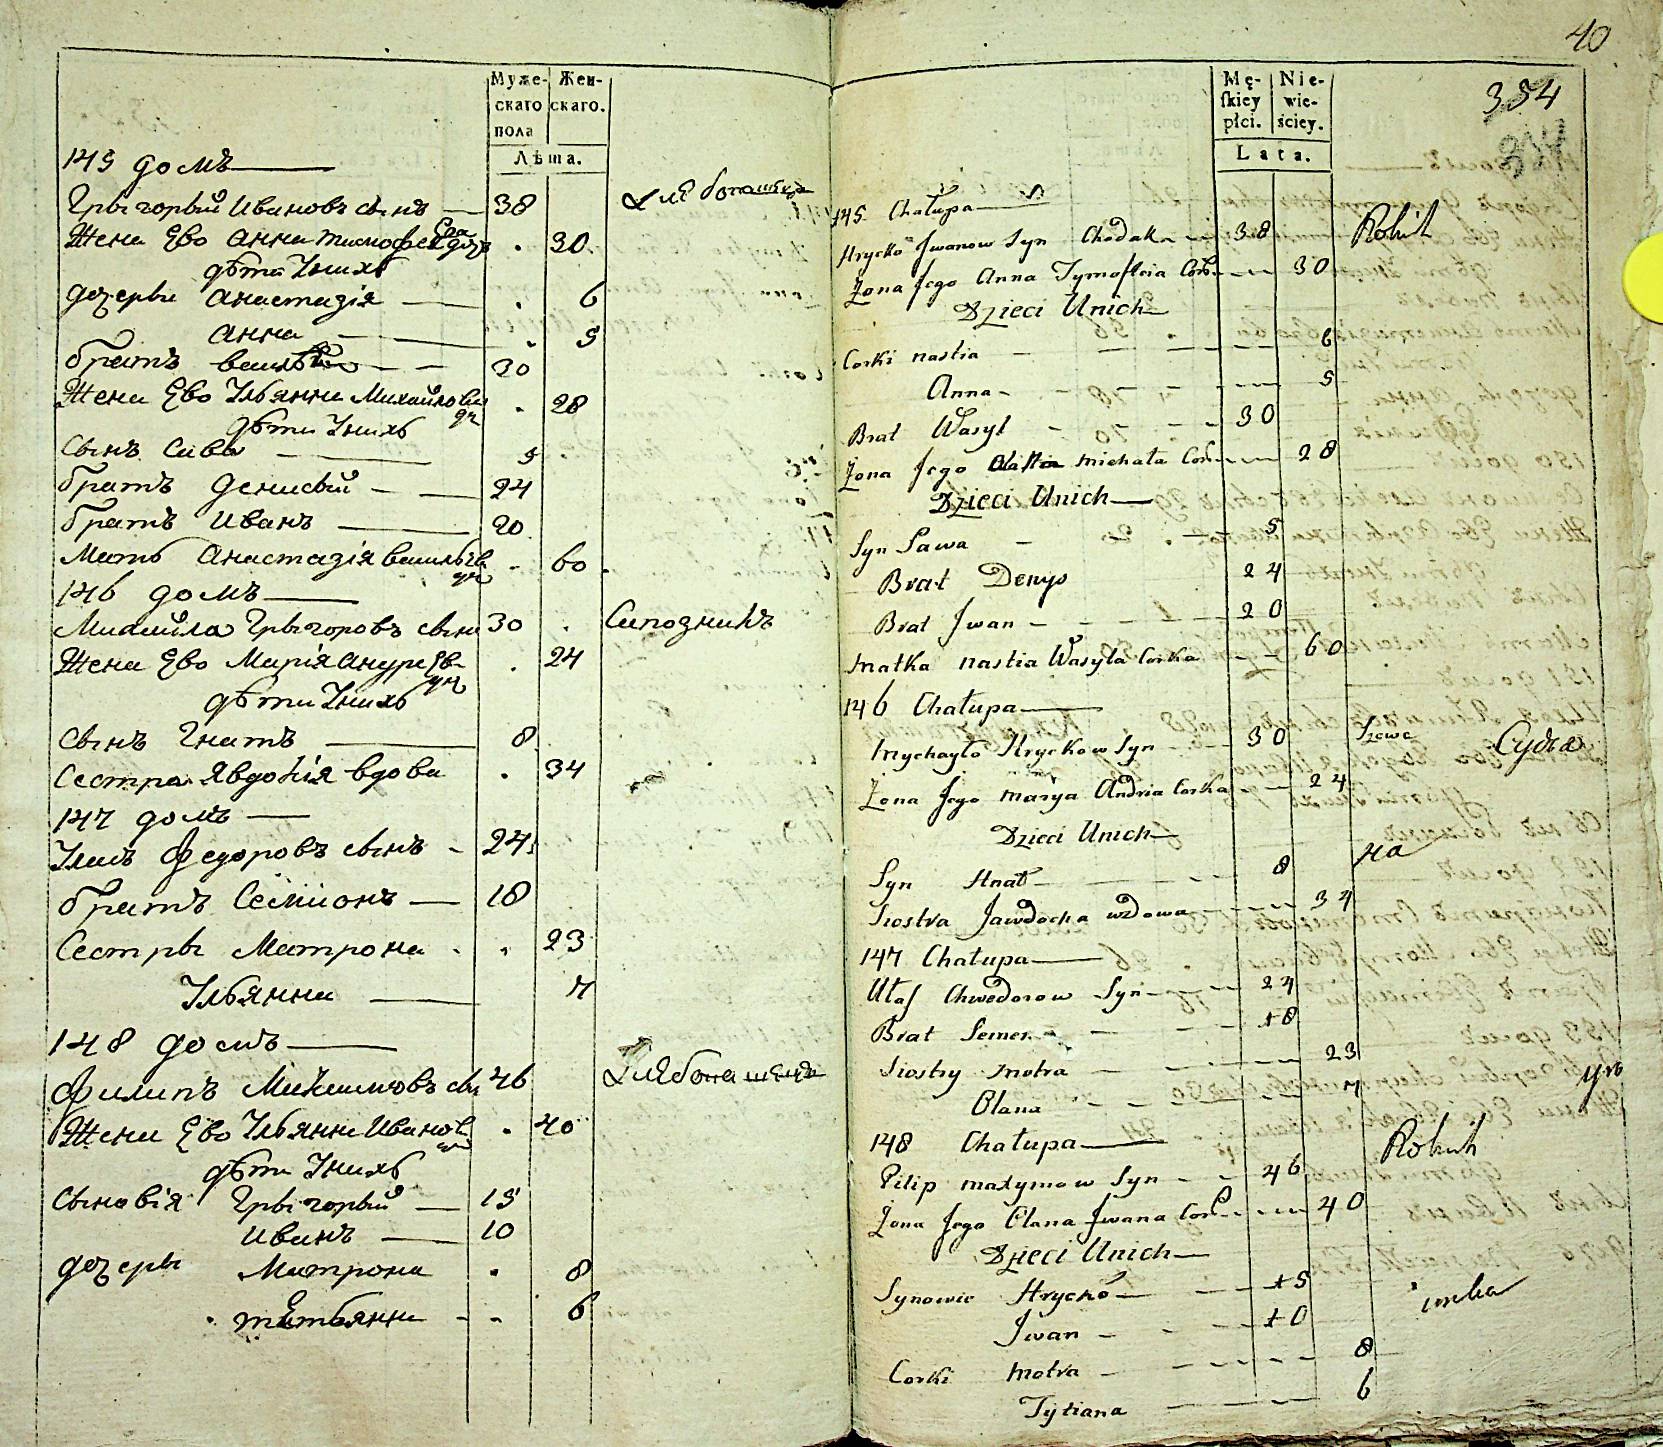 Муже- Жен-
скаго скаго.
пола
Лѣта.
145 домъ
Грыгорый Ивановъ сынъ — 38
Жена Ево Анна Тимофеева доч . 30
дѣти Уныхъ
дочеры Анастазія — . 6
Анна — . 5
братъ василь — 30
Жена Ево Ульянна Михайлова дч . 28
дѣти Уныхъ
Сынъ Сава — 5
братъ Денисый — 24
братъ Иванъ — 20
Мать Анастазія васильева дч . 60
146 домъ
Михайла Грыгоровъ сынъ 30 . Сапозникъ
Жена Ево Марія Андреева дч . 24
дѣти Уныхъ
Сынъ Гнатъ — 8
Сестра Явдокія вдова . 34
147 домъ
Уласъ Федоровъ сынъ - 24
братъ Семионъ — 18
Сестры Матрона . . 23
Ульянна — 7
148 домъ
Филипъ Максимовъ сы 46
Жена Ево Ульянна Иванова дч . 40
дѣти Уныхъ
Сыновія Грыгорый — 15
Иванъ — 10
дочеры Матрона . 8
татьянна - - 6
40
354
Mę- Nie-
skiey wie-
płci. ściey.
Lata.
145 Chałupa
Hrycko Jwanow Syn Chodak 38 Robih
Żona Jego Anna Tymofieia Cor 30
Dzieci Unich
Corki nastia 6
Anna 5
Brat Wasyl 30
Żona Jego michała Cor 28
Dzieci Unich
Syn Sawa 5
Brat Denys 24
Brat Jwan 20
matka nastia Wasyla Corka 60
146 Chałupa
mychayło Hryckow Syn 30 Szewc Судья
Żona Jego marya Andria Corka 24
Dzieci Unich
на
Syn Hnat 8
Siostra Jawdocha wdowa 34
147 Chałupa
Ułas Chwedorow Syn 24
Brat Semen 18
Siostry motra 23
Olana 7
148 Chałupa Robih
Pilip maxymow Syn 46
Żona Jego Olana Jwana Cor 40
Dzieci Unich
Synowie Hrycko 15
Jwan 10
Corki motra 8
Tytiana 6